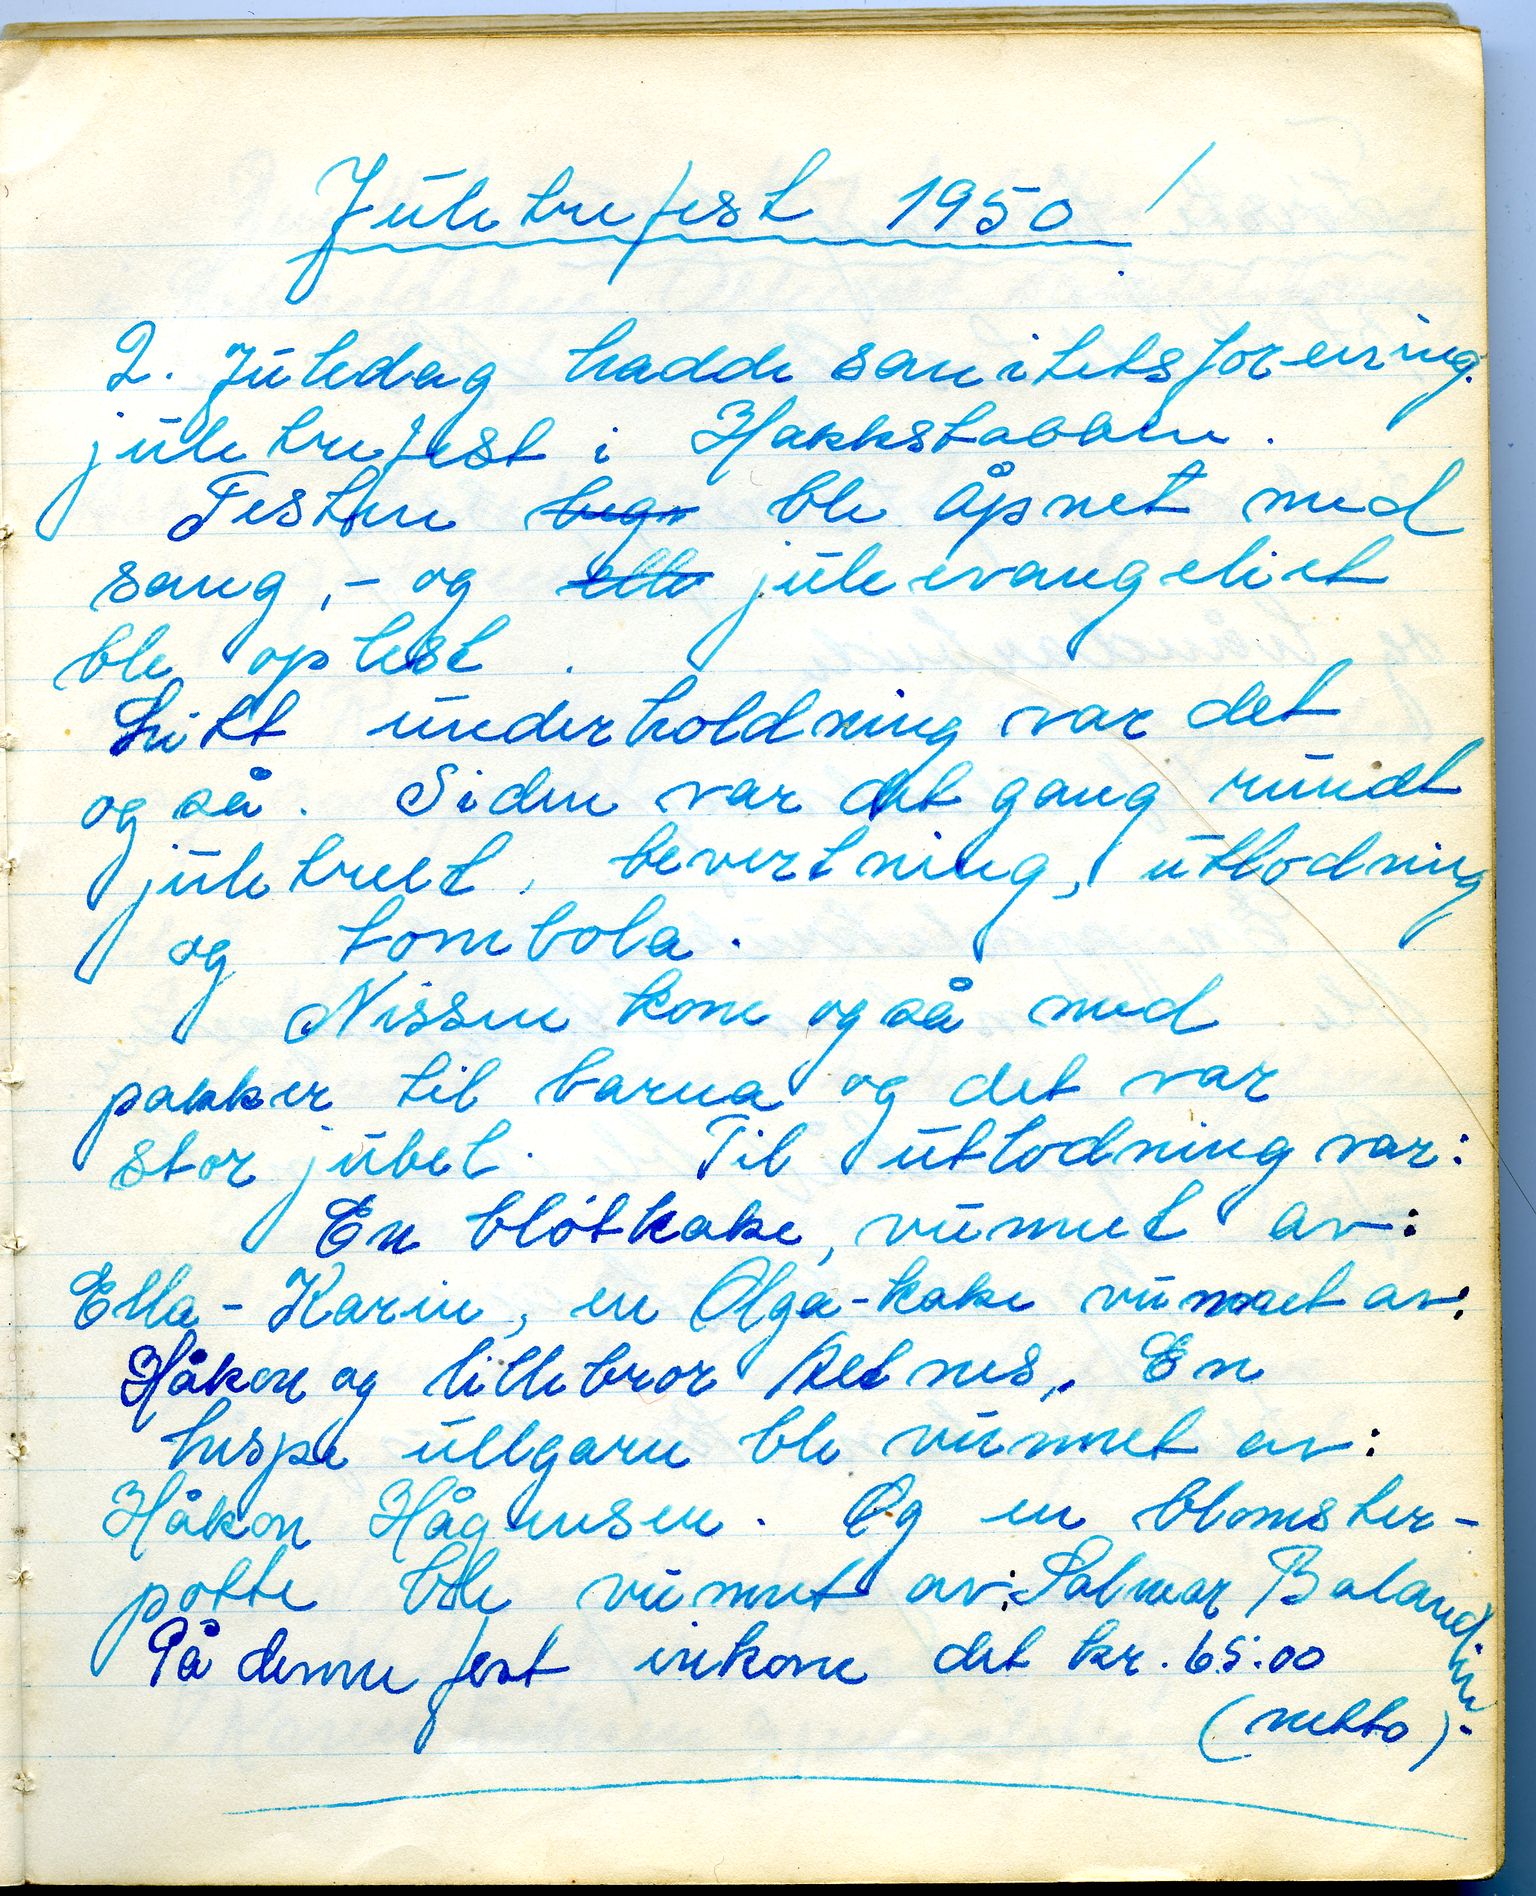 Juletrefest 1950!
2. Juledag hadde sanitetsforening.
juletrefest i Hakkstabben.
Festen begn ble åpnet med
sang, - og elle juleevangeliet
ble oplest.
Litt underholdning var det
også. Siden var det gang rundt
juletreet, bevertning, utlodning
og tombola.
Nissen kom også med
pakker til barna og det var
stor jubel. Til utlodning var:
En bløtkake, vunnet av:
Ella-Karin, en Olga-kake vunnet av:
Håkon og lillebror Aetnes. En
hespe ullgarn ble vunnet av:
Håkon Hågensen. Og en blomster-
potte ble vunnet av: Salmar Balandin.
På denne fest innkom det kr. 65:00
(netto)